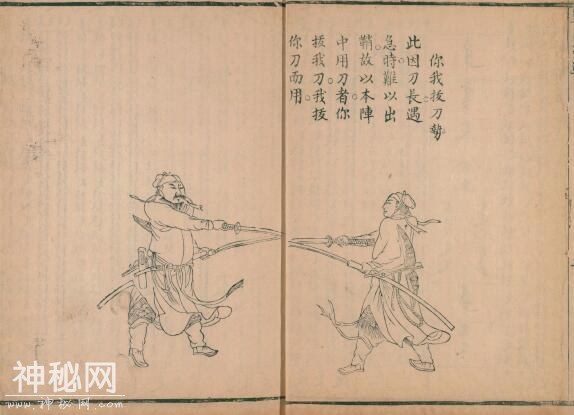 你我拔刀勢
此因刀長遇
急時難以出
鞘故以本陣
中用刀者你
拔我刀我拔
你刀而用
神秘网
www.神秘网.com